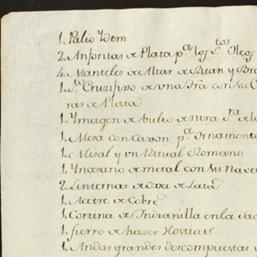 1. Palio Ydem
2. Anforitas de Plata pa. los Stos. Oleos
4. Manteles de Altar de Ruan y Bre
1. Sto. Crusifixo de una Bra con su C
ras de Plata
1. Ymagen de bulto de ntra. Sra. de l
1. Mesa con Caxon pa. Ornamento
1. Misal y un Ritual Romano
1. Yncensario de metal con su Nave
2. Linternas de oja de Lata
1. Acetre de Cobre
1. Cortina de Indianilla en la Sac
1. fierro de haser Hostias
1. Andas grandes descompuestas